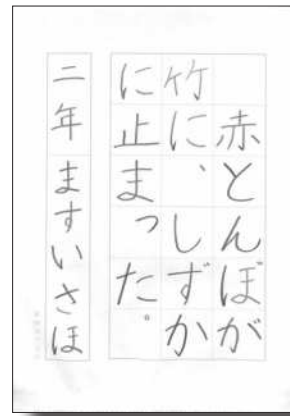 赤とんぼが
竹に、しずか
に止まった。
二年ますいさほ